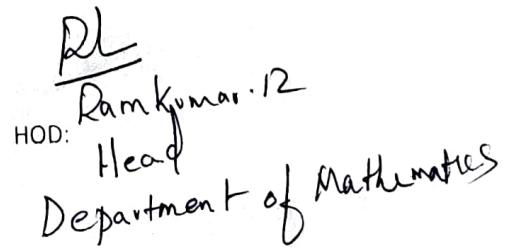 RL
Ramkumar.R
HOD:
Head
Department of Mathematics